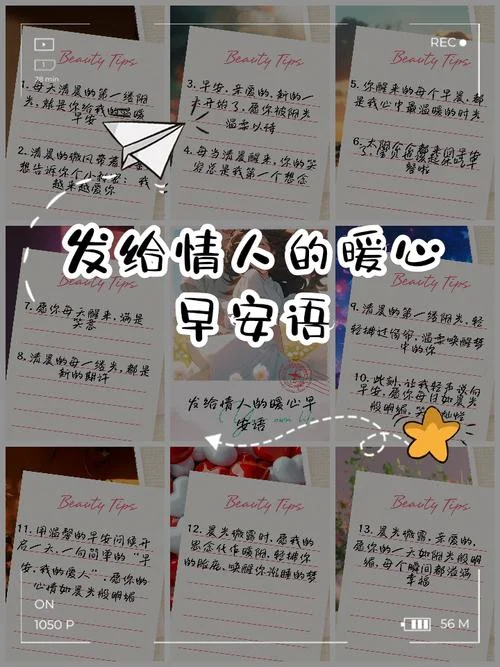 REC
1
28 min
Beauty Tips
1. 每天清晨的第一缕阳
光,就是你给我的温暖
早安
2. 清晨的微风带着
想告诉你个小秘密:我
越来越爱你
Beauty Tips
3. 早安,亲爱的,新的一
天开始了,愿你被阳光
温柔以待
4. 每当清晨醒来,你的笑
容总是我第一个想念
Beauty Tips
5. 你醒来的每个早晨,都
是我心中最温暖的时光
6.
早安啦
发给情人的暖心
早安语
7. 愿你每天醒来,满是
笑意
8. 清晨的每一缕光,都是
新的期许
发给情人的暖心早
安语
9. 清晨的第一缕阳光,轻
轻拂过窗帘,温柔唤醒梦
中的你
10. 此刻,让我轻声说句
早安,愿你每日如晨光
般明媚,笑
Beauty Tips
11. 用温馨的早安问候开
启一天,一句简单的“早
安,我的爱人”,愿你的
心情如晨光般明媚
Beauty Tips
12. 晨光微露时,愿我的
思念化作暖阳,轻拂你
的脸庞,唤醒你沉睡的梦
Beauty Tips
13. 晨光微露,亲爱的,
愿你的一天如阳光般明
媚,每个瞬间都溢满
幸福
ON
1050 P
56 M